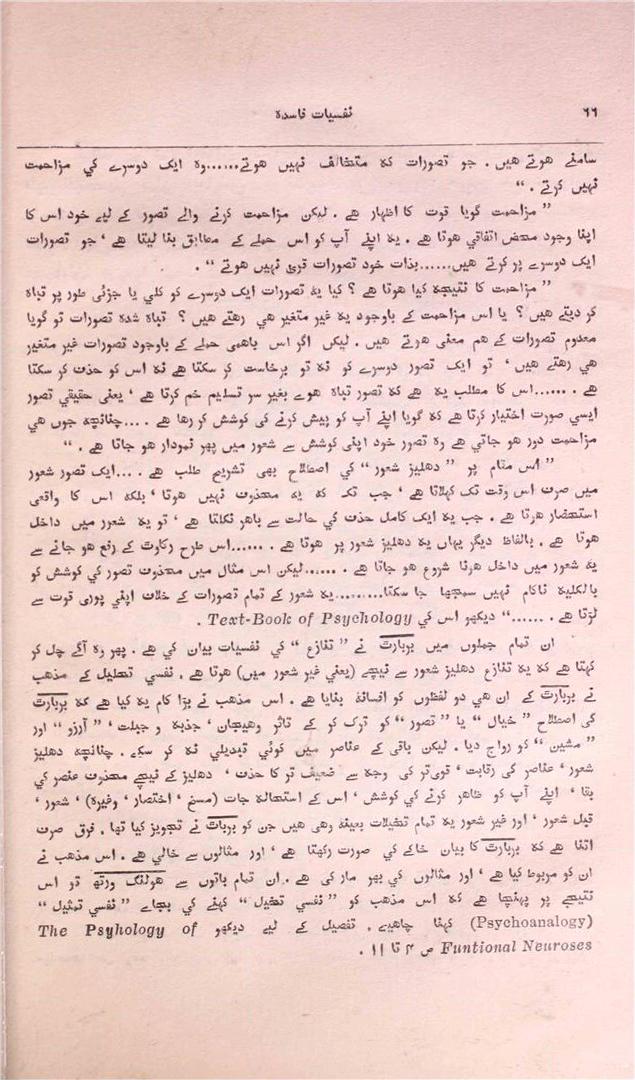 ٦٦ نفسیات فاسدہ
سامنے ہوتے ہیں ۔ جو تصورات کہ متخالف نہیں ہوتے......وہ ایک دوسرے کی مزاحمت
نہیں کرتے ۔ “
” مزاحمت گویا قوت کا اظہار ہے ۔ لیکن مزاحمت کرنے والے تصور کے لیے خود اس کا
اپنا وجود محض اتفاقی ہوتا ہے ۔ یہ اپنے آپ کو اس حملے کے مطابق بنا لیتا ہے ' جو تصورات
ایک دوسرے پر کرتے ہیں......بذات خود تصورات قویٰ نہیں ہوتے “ ۔
” مزاحمت کا نتیجہ کیا ہوتا ہے ؟ کیا یہ تصورات ایک دوسرے کو کلی یا جزئی طور پر تباہ
کر دیتے ہیں ؟ یا اس مزاحمت کے باوجود یہ غیر متغیر ہی رہتے ہیں ؟ تباہ شدہ تصورات تو گویا
معدوم تصورات کے ہم معنی ہوتے ہیں ۔ لیکن اگر اس باہمی حملے کے باوجود تصورات غیر متغیر
ہی رہتے ہیں ' تو ایک تصور دوسرے کو نہ تو برخاست کر سکتا ہے نہ اس کو حذف کر سکتا
ہے ۔ ......اس کا مطلب یہ ہے کہ تصور تباہ ہوے بغیر سر تسلیم خم کرتا ہے ' یعنی حقیقی تصور
ایسی صورت اختیار کرتا ہے کہ گویا اپنے آپ کو پیش کرنے کی کوشش کر رہا ہے ۔ ...چنانچہ جوں ہی
مزاحمت دور ہو جاتی ہے وہ تصور خود اپنی کوشش سے شعور میں پھر نمودار ہو جاتا ہے ۔ “
” اس مقام پر ” دہلیز شعور “ کی اصطلاح بھی تشریح طلب ہے ۔ ...ایک تصور شعور
میں صرف اس وقت تک کہلاتا ہے ' جب تک کہ یہ محذوف نہیں ہوتا ' بلکہ اس کا واقعی
استحضار ہوتا ہے ۔ جب یہ ایک کامل حذف کی حالت سے باہر نکلتا ہے ' تو یہ شعور میں داخل
ہوتا ہے ۔ بالفاظ دیگر یہاں یہ دہلیز شعور پر ہوتا ہے ۔ ......اس طرح رکاوٹ کے رفع ہو جانے سے
یہ شعور میں داخل ہونا شروع ہو جاتا ہے ۔ ......لیکن اس مثال میں محذوف تصور کی کوشش کو
بالکلیہ ناکام نہیں سمجھا جا سکتا.........یہ شعور کے تمام تصورات کے خلاف اپنی پوری قوت سے
لڑتا ہے ۔ ......“ دیکھو اس کی Text-Book of Psychology ۔
ان تمام جملوں میں ہربارٹ نے ” تنازع “ کی نفسیات بیان کی ہے ۔ پھر وہ آگے چل کر
کہتا ہے کہ یہ تنازع دہلیز شعور سے نیچے (یعنی غیر شعور میں) ہوتا ہے ۔ نفسی تحلیل کے مذہب
نے ہربارٹ کے ان ہی دو لفظوں کو افسانہ بنایا ہے ۔ اس مذہب نے بڑا کام یہ کیا ہے کہ ہربارٹ
کی اصطلاح ” خیال “ یا ” تصور “ کو ترک کر کے تاثر وہیجان ' جذبہ و جبلت ' ” آرزو “ اور
” مشین “ کو رواج دیا ۔ لیکن باقی کے عناصر میں کوئی تبدیلی نہ کر سکے ۔ چنانچہ دہلیز
شعور ' عناصر کی رقابت ' قوی تر کی وجہ سے ضعیف تر کا حذف ' دہلیز کے نیچے محذوف عنصر کی
بقا ' اپنے آپ کو ظاہر کرنے کی کوشش ' اس کے استحالہ جات (مسخ ' اختصار ' وغیرہ) ' شعور '
قبل شعور ' اور غیر شعور یہ تمام تخیلات بعینہ وہی ہیں جن کو ہربارٹ نے تجویز کیا تھا ۔ فرق صرف
اتنا ہے کہ ہربارٹ کا بیان خاکے کی صورت رکھتا ہے ' اور مثالوں سے خالی ہے ۔ اس مذہب نے
ان کو مربوط کیا ہے ' اور مثالوں کی بھر مار کی ہے ۔ ان تمام باتوں سے ہولنگ ورتھ تو اس
نتیجے پر پہنچا ہے کہ اس مذہب کو ” نفسی تحلیل “ کہنے کی بجاے ” نفسی تمثیل “
(Psychoanalogy) کہنا چاہیے ۔ تفصیل کے لیے دیکھو The Psyhology of
Funtional Neuroses ص ۴ تا ۱۱ ۔